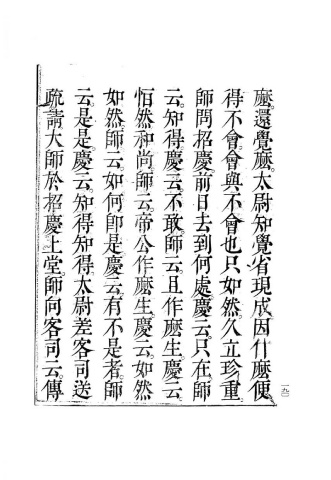 麽還覺麽太尉知覺省現成因什麽便
得不會會與不會也只如然久立珍重
師問招慶前日去到何處慶云只在師
云知得慶云不敢師云且作麽生慶云
怕然和尚師云帝公作麽生慶云如然
如然師云如何卽是慶云有不是者師
云是是慶云知得知得太尉差客司送
疏請大師於招慶上堂師向客司云傳
一九